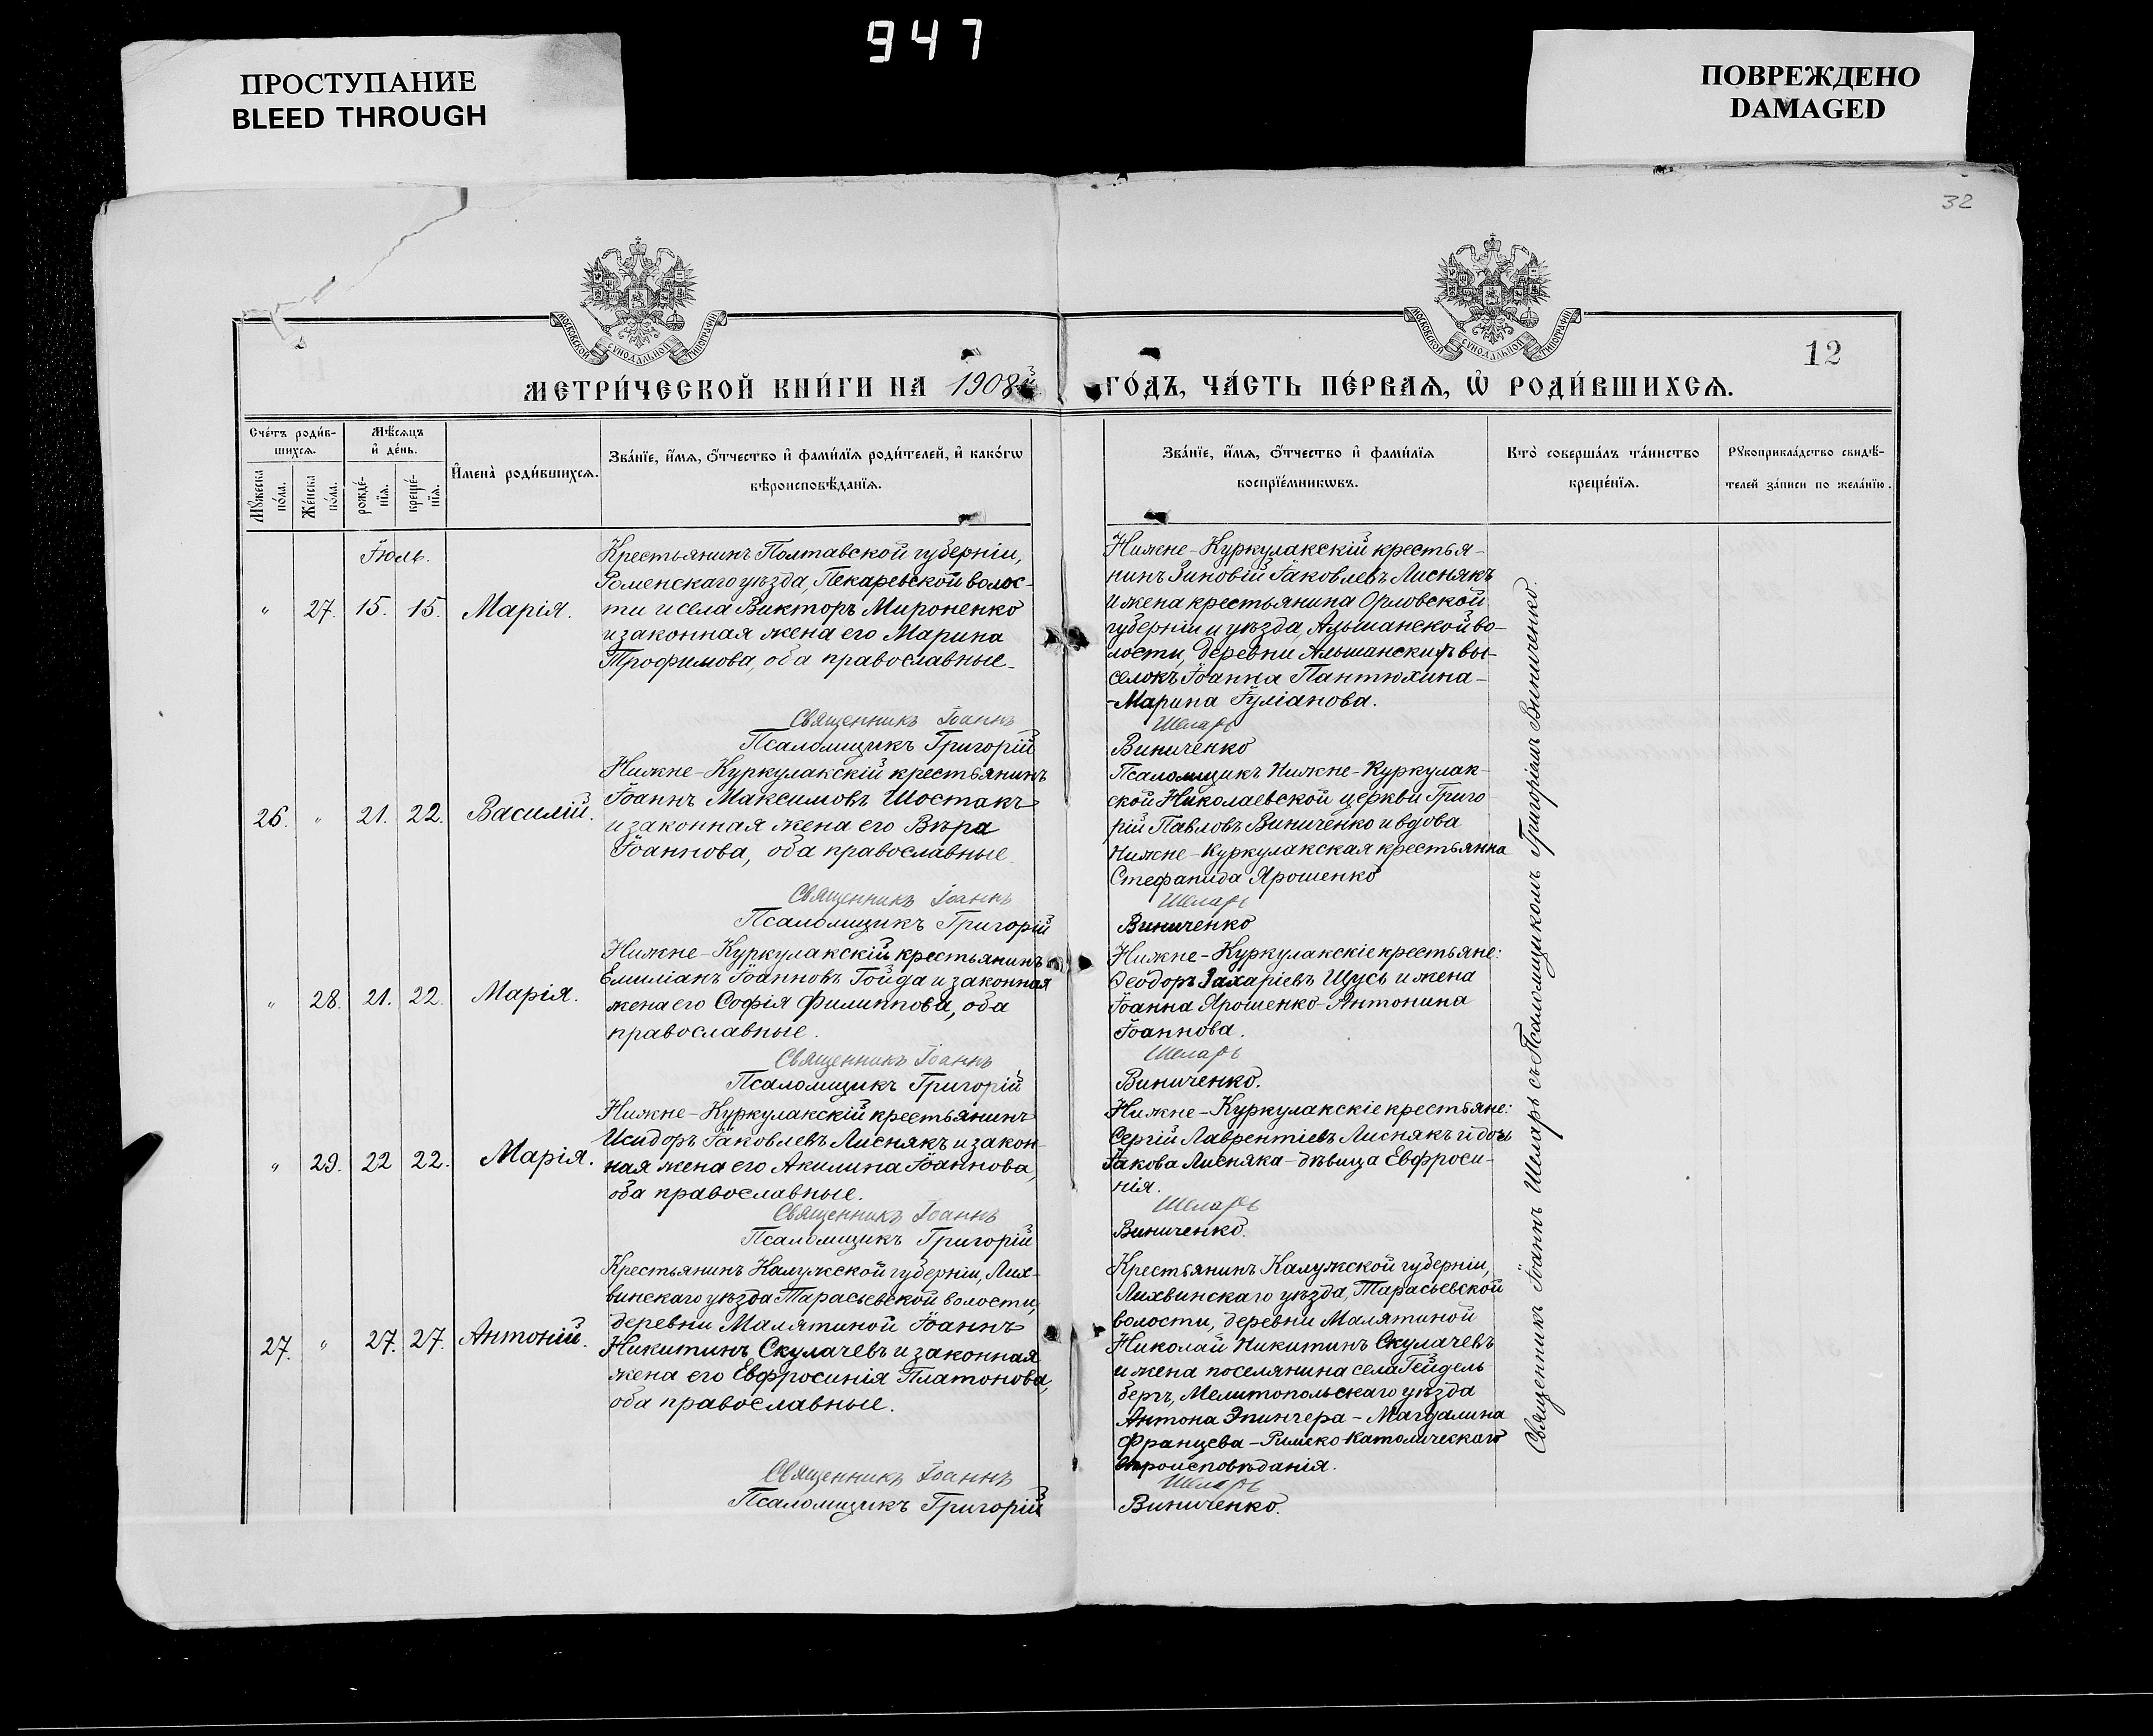 947
ПРОСТУПАНИЕ
BLEED THROUGH
ПОВРЕЖДЕНО
DAMAGED
32
МОСКОВСКОЙ СѴНОДАЛЬНОЙ ТИПОГРАФІИ
МОСКОВСКОЙ СѴНОДАЛЬНОЙ ТИПОГРАФІИ
12
МЕТРИ́ЧЕСКОЙ КНИ́ГИ НА 1908й ГО́ДЪ, ЧА́СТЬ ПЕ́РВАѦ, Ѡ҆ РОДИ́ВШИХСѦ.
Сче́тъ роди́в-
шихсѧ.
Мꙋ́жеска по́ла.
Же́нска по́ла.
Мѣ́сѧцъ
и҆ де́нь.
рожде́-
нїѧ.
креще́-
нїѧ.
И҆мена̀ роди́вшихсѧ.
Зва́нїе, и҆́мѧ, ѻ҆́тчество и҆ фами́лїѧ роди́телей, и҆ како́гѡ
вѣроисповѣ́данїѧ.
Зва́нїе, и҆́мѧ, ѻ҆́тчество и҆ фами́лїѧ
воспрїе́мникѡвъ.
Кто̀ соверша́лъ та́инство
креще́нїѧ.
Рꙋкоприкла́дство свидѣ́-
телей за́писи по жела́нїю.
Іюль.
" 27. 15. 15. Марія.
Крестьянинъ Полтавской губерніи,
Роменскаго уѣзда, Пекаревской волос-
ти и села Викторъ Мироненко
и законная жена его Марина
Трофимова, оба православные.
Священникъ Іоаннъ
Псаломщикъ Григорій
Нижне-Куркулакскій крестья-
нинъ Зиновій Іаковлевъ Лиснякъ
и жена крестьянина Орловской
губерніи и уѣзда, Альшанской во-
лости, деревни Альшанскихъ вы-
селокъ Іоанна Пантюхина-
-Марина Іуліанова.
Шеларь
Виниченко
26. " 21. 22. Василій.
Нижне-Куркулакскій крестьянинъ
Іоаннъ Максимовъ Шостакъ
и законная жена его Вѣра
Іоаннова, оба православные.
Священникъ Іоаннъ
Псаломщикъ Григорій
Псаломщикъ Нижне-Куркулак-
ской Николаевской церкви Григо
рій Павловъ Виниченко и вдова
Нижне-Куркулакская крестьянка
Стефанида Ярошенко
Шеларь
Виниченко
" 28. 21. 22. Марія.
Нижне-Куркулакскій крестьянинъ
Емиліанъ Іоанновъ Гойда и законная
жена его Софія Филиппова, оба
православные.
Священникъ Іоаннъ
Псаломщикъ Григорій
Нижне-Куркулакскіе крестьяне:
Ѳеодоръ Захаріевъ Щусь и жена
Іоанна Ярошенко-Антонина
Іоаннова.
Шеларь
Виниченко.
" 29. 22 22. Марія.
Нижне-Куркулакскій крестьянинъ
Исидоръ Іаковлевъ Лиснякъ и закон-
ная жена его Акилина Іоаннова,
оба православные.
Священникъ Іоаннъ
Псаломщикъ Григорій
Нижне-Куркулакскіе крестьяне:
Сергій Лаврентіевъ Лиснякъ и дочь
Іакова Лисняка-дѣвица Евфроси-
нія.
Шеларь
Виниченко.
27. " 27. 27. Антоній.
Крестьянинъ Калужской губерніи, Лих-
винскаго уѣзда Тарасьевской волости,
деревни Малятиной Іоаннъ
Никитинъ Скулачевъ и законная
жена его Евфросинія Платонова,
оба православные.
Священникъ Іоаннъ
Псаломщикъ Григорій
Крестьянинъ Калужской губерніи,
Лихвинскаго уѣзда, Тарасьевской
волости, деревни Малятиной
Николай Никитинъ Скулачевъ
и жена поселянина села Гейдель
бергъ, Мелитопольскаго уѣзда
Антона Эпингера - Магдалина
Францева - Римско-Католическаго
вѣроисповѣданія.
Шеларь
Виниченко.
Священникъ Іоаннъ Шеларь съ Псаломщикомъ Григоріемъ Виниченко.